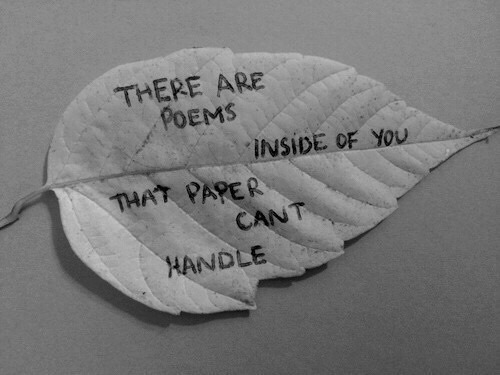 THERE ARE
POEMS
INSIDE OF YOU
THAT PAPER
CANT
HANDLE